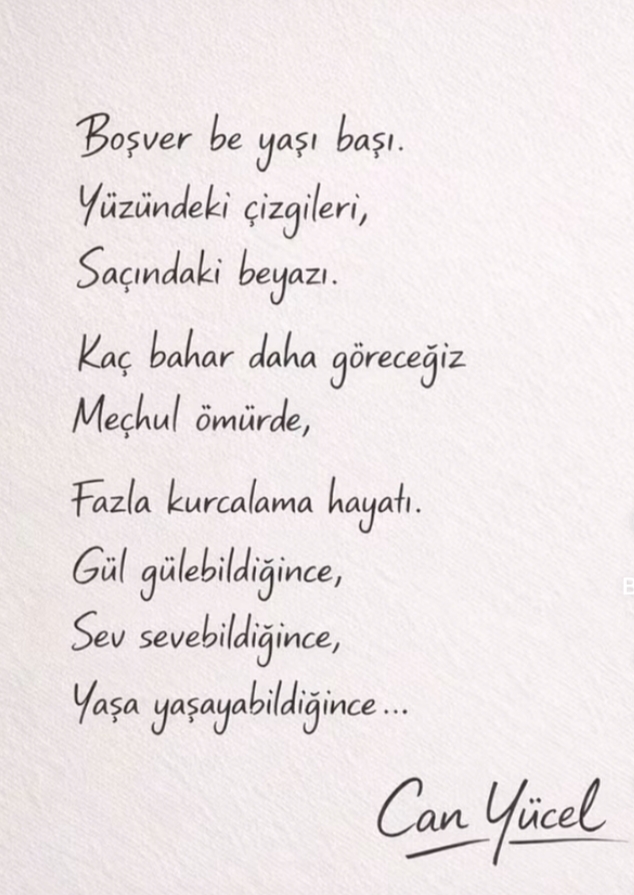 Boşver be yaşı başı.
Yüzündeki çizgileri,
Saçındaki beyazı.
Kaç bahar daha göreceğiz
Meçhul ömürde,
Fazla kurcalama hayatı.
Gül gülebildiğince,
Sev sevebildiğince,
Yaşa yaşayabildiğince...
Can Yücel